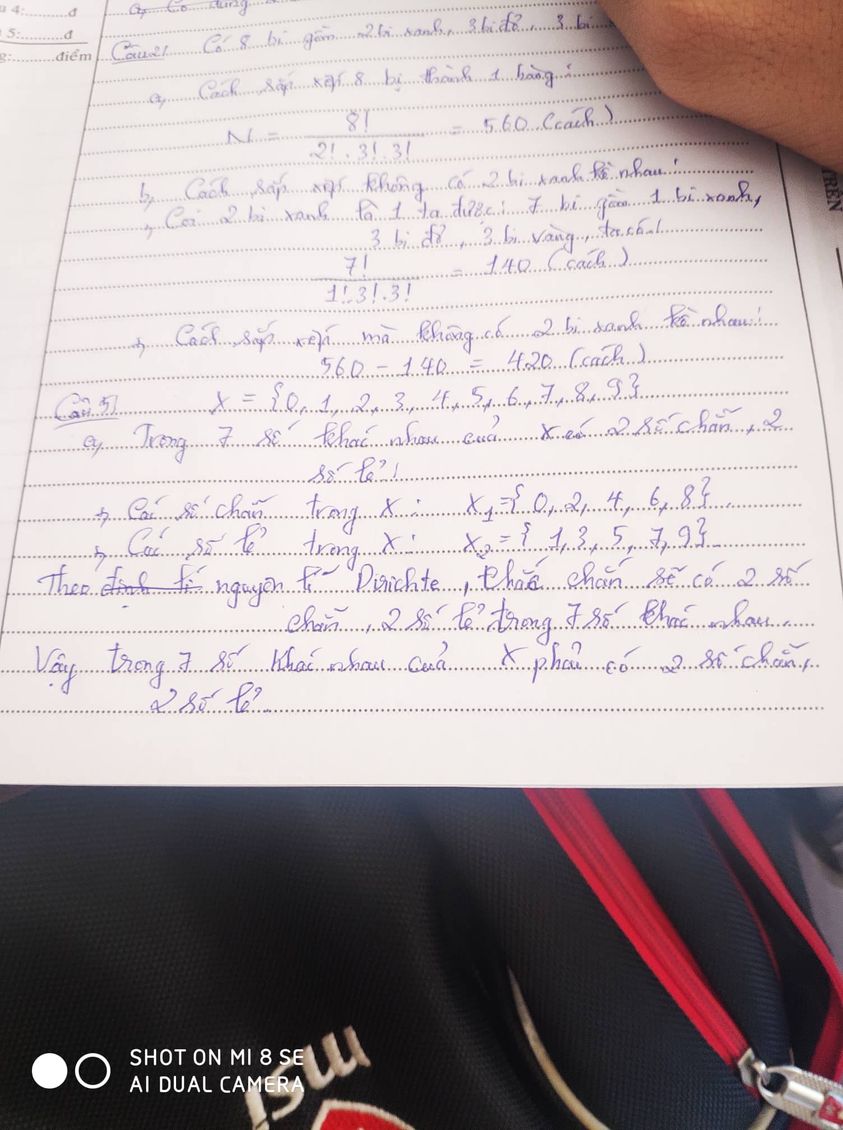 4:..........đ
5:..........đ
g:..........điểm
a, Có dùng
Câu 2: Có 8 bi gồm 2 bi xanh, 3 bi đỏ, 3 bi
a, Cách sắp xếp 8 bi thành 1 hàng:
N = 8! / 2!.3!.3! = 560 (cách)
b, Cách sắp xếp không có 2 bi xanh kề nhau:
→ Coi 2 bi xanh là 1 ta được: 7 bi gồm 1 bi xanh,
3 bi đỏ, 3 bi vàng, ta có:
7! / 1!.3!.3! = 140 (cách)
→ Cách sắp xếp mà không có 2 bi xanh kề nhau:
560 - 140 = 420 (cách)
X = {0, 1, 2, 3, 4, 5, 6, 7, 8, 9}
a, Trong 7 số khác nhau của X có 2 số chẵn, 2
số lẻ!
→ Các số chẵn trong X: X₁={0, 2, 4, 6, 8}.
→ Các số lẻ trong X: X₂={1, 3, 5, 7, 9}
Theo định lí nguyên lí Dirichte, chắc chắn sẽ có 2 số
chẵn, 2 số lẻ trong 7 số khác nhau.
Vậy trong 7 số khác nhau của X phải có 2 số chẵn,
2 số lẻ.
TRÊN
SHOT ON MI 8 SE
AI DUAL CAMERA